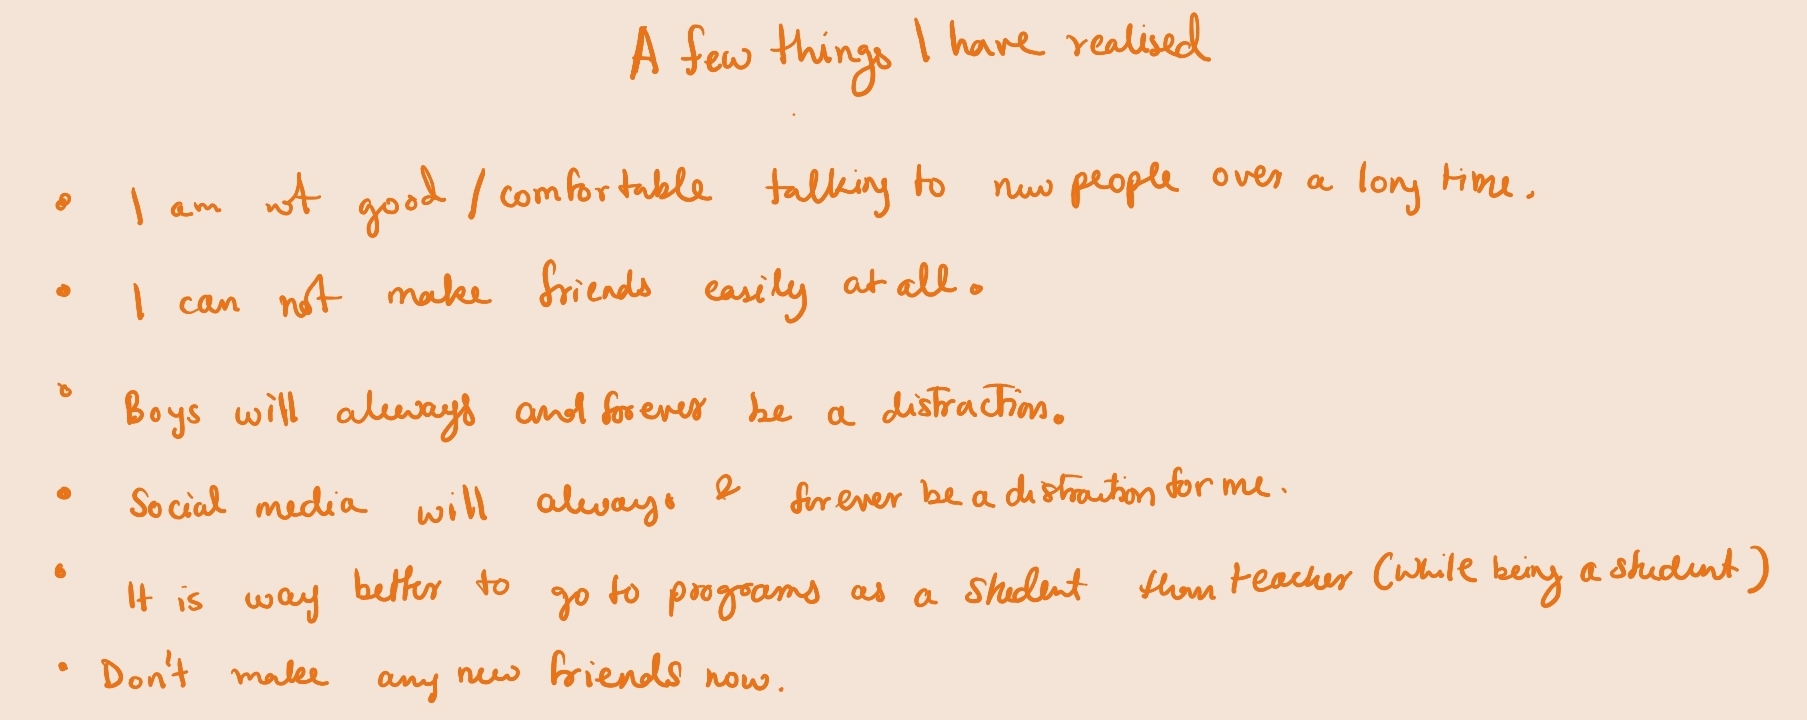 A few things I have realised
• I am not good / comfortable talking to new people over a long time.
• I can not make friends easily at all.
• Boys will always and forever be a distraction.
• Social media will always & forever be a distraction for me.
• It is way better to go to programs as a student than teacher (while being a student)
• Don't make any new friends now.